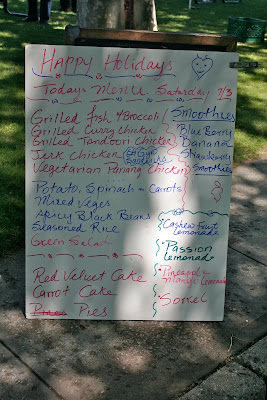 Happy Holidays
Todays Menu Saturday 7/3
Grilled fish & Broccoli
Grilled Curry Chicken
Grilled Tandoori Chicken
Jerk Chicken
Vegetarian Panang Chicken
Potato, Spinach & Carrots
Mixed Veges
Spicy Black Beans
Seasoned Rice
Green Salad
Red Velvet Cake
Carrot Cake
Pies
Smoothies
Blue Berry
Banana
Strawberry
Smoothies
Cashew Fruit
Lemonade
Passion
Lemonade
Pineapple-
Mango Lemonade
Sorrel